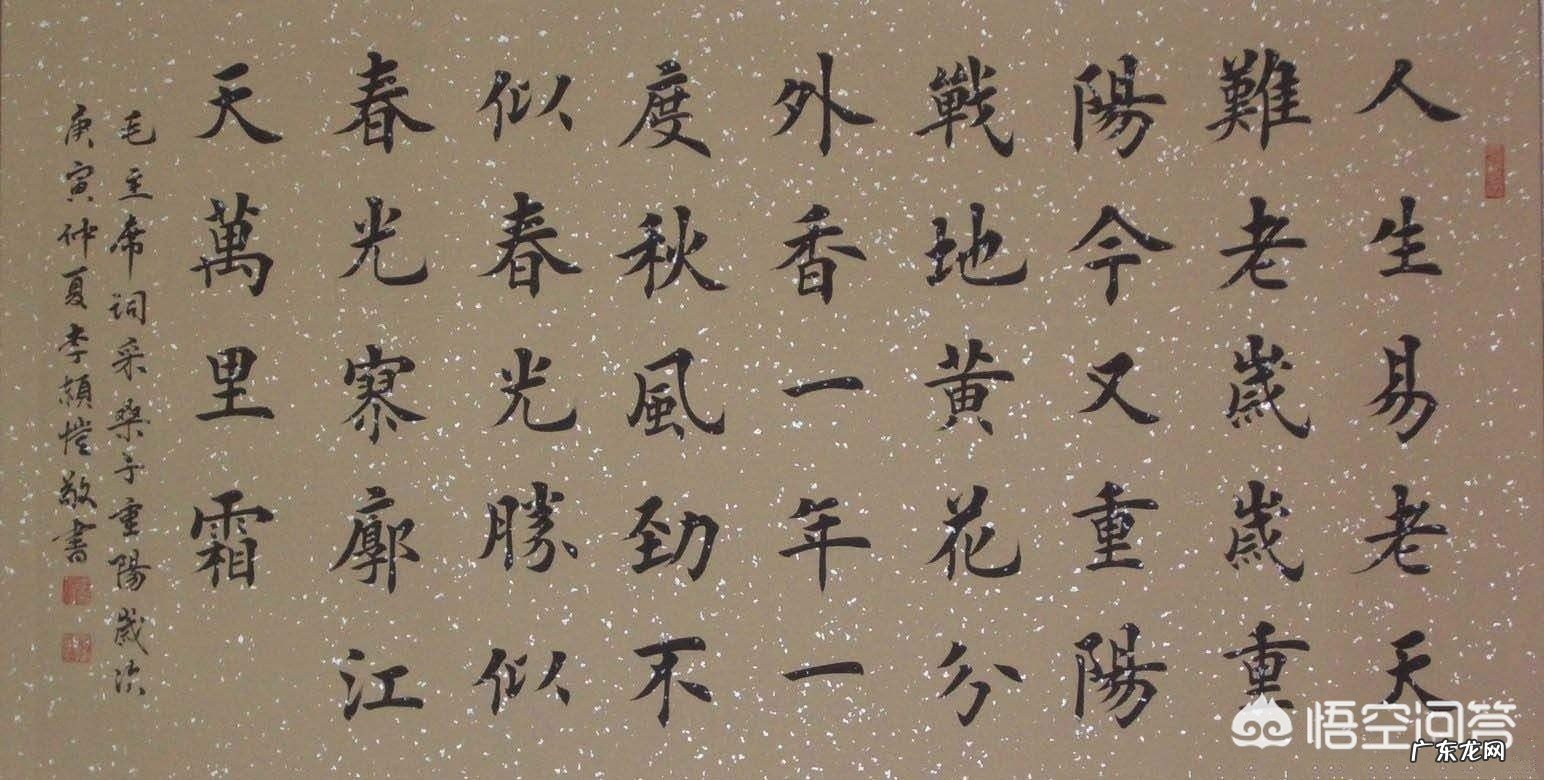 人生易老天
難老歲歲重
陽今又重陽
戰地黃花分
外香一年一
度秋風勁不
似春光勝似
春光寥廓江
天萬里霜
毛主席词采桑子重陽歲次
庚寅仲夏李愷敬書
悟空问答
广东龙网